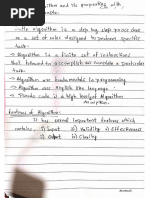 Algorithm and its properties with
example:
→ An Algorithm is a step by step process
or a set of rules designed to perform specific
task.
→ Algorithm is a finite set of instructions
that followed to accomplish a particular
task.
→ Algorithm are fundamentals in programming
→ Algorithm are using English like words.
→ Pseudo code is a high level of Algorithm
Features of Algorithm:-
It has several important features which
contains, 1) Input 3) Validity 5) Effectiveness
2) output 4) Clarity